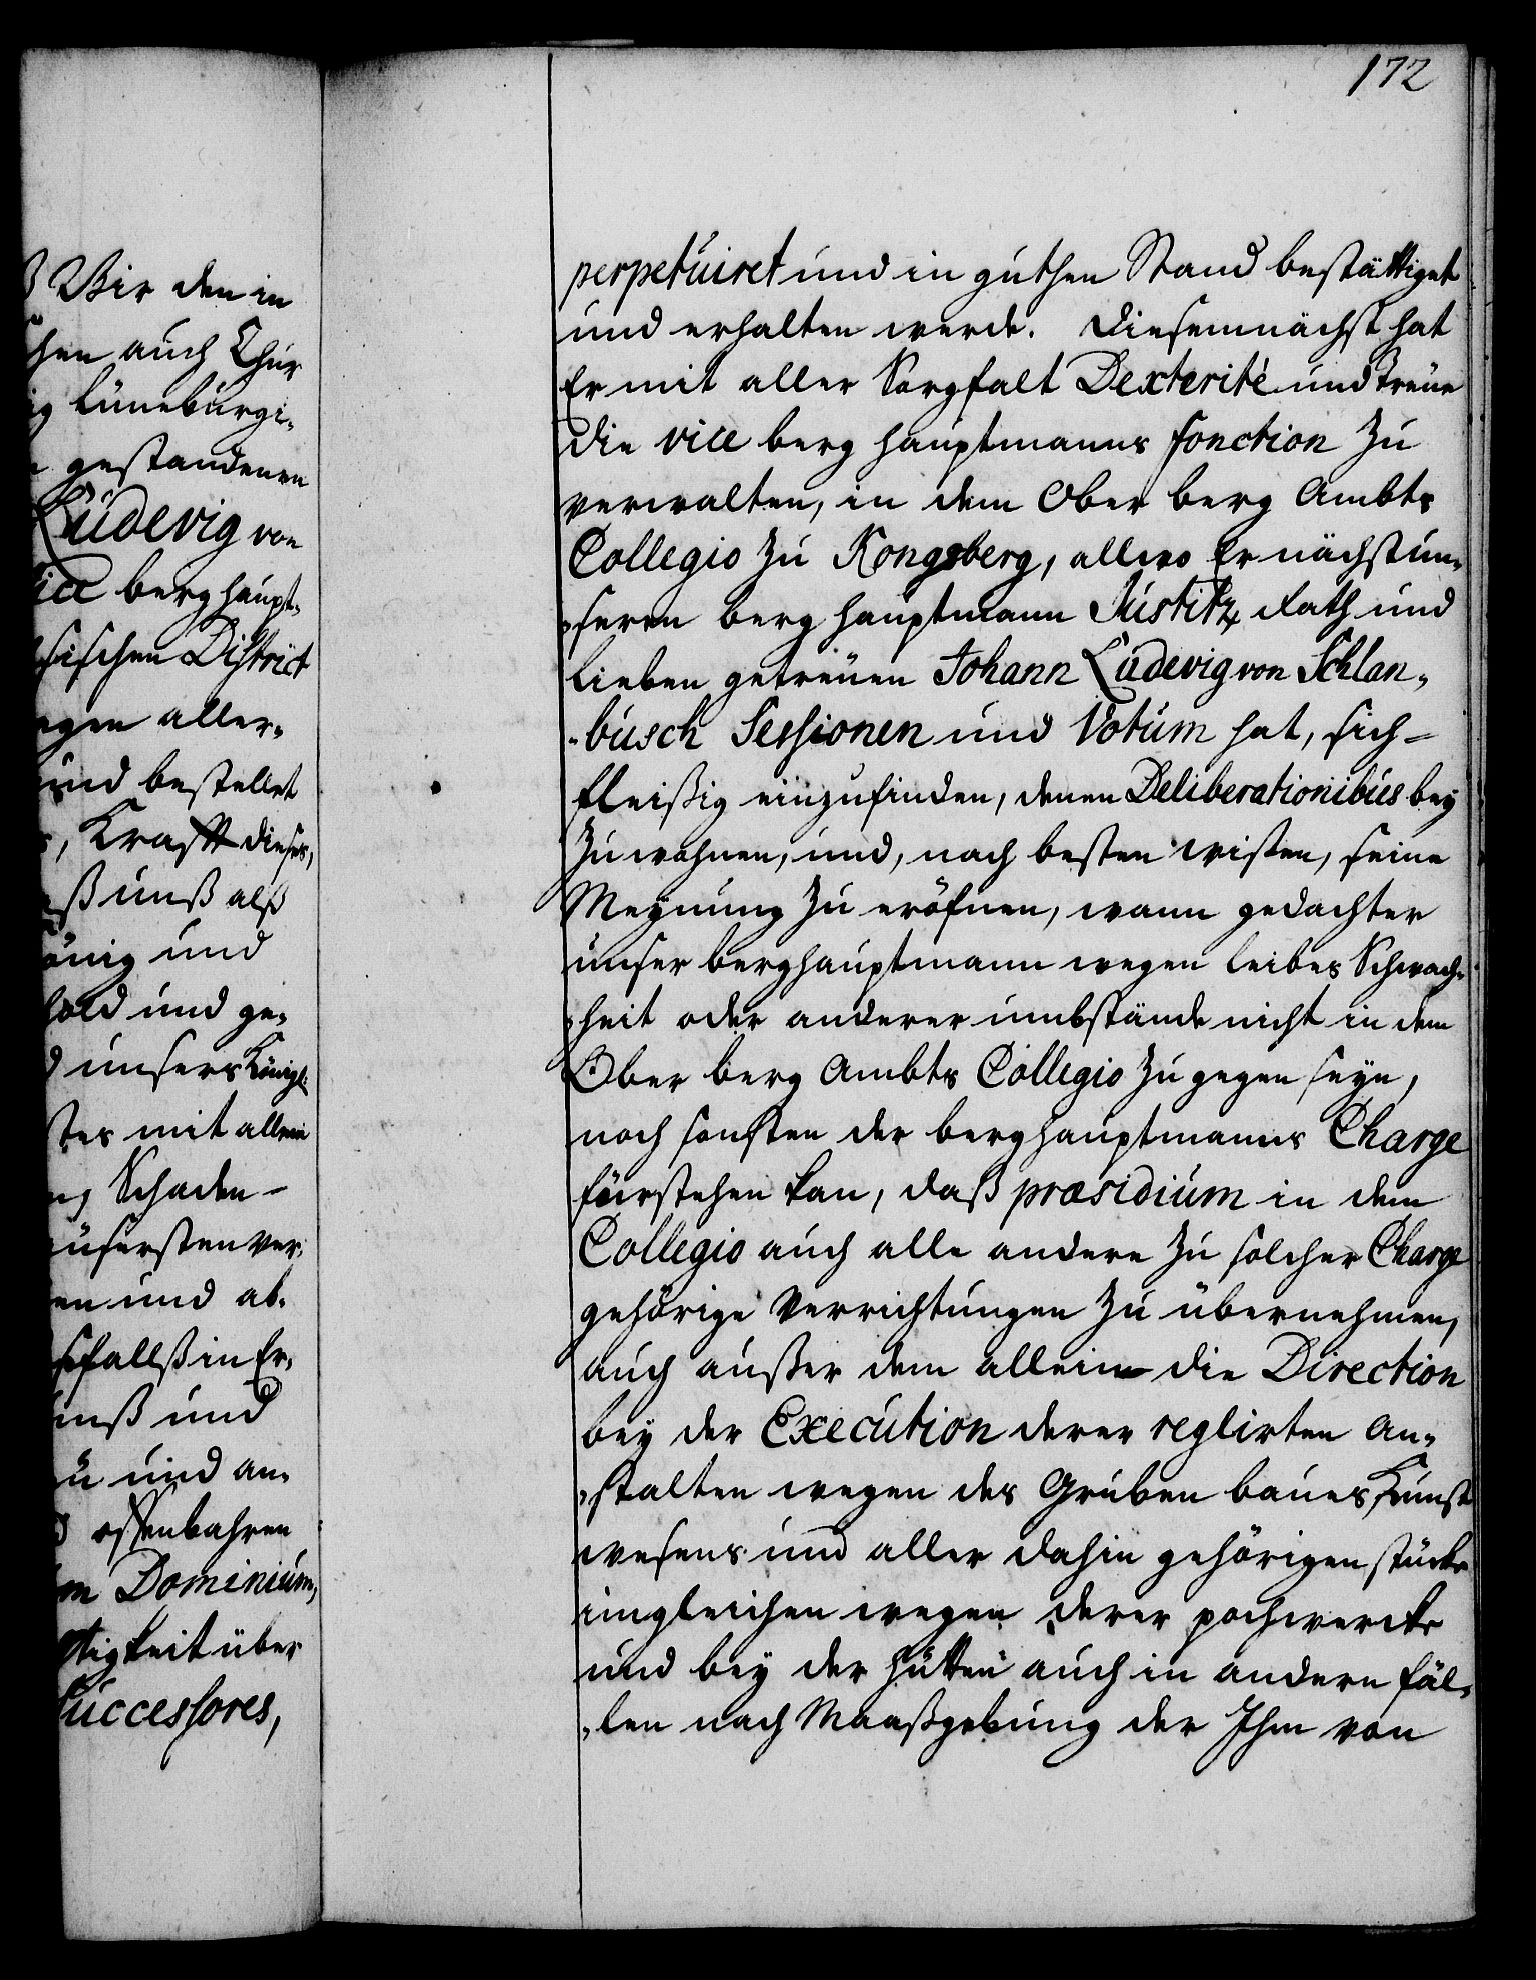 172
ß Wir den in
schen auch Chur
ig Lüneburgi„
gestandenen
Ludevig von
ice berg haupt„
sischen District
egen aller„
und bestellet
, Krafft dieses,
ß unß alß
König und
hold und ge„
unsers Königl:
tes mit allem
Schaden
eüsersten ver„
en und ab„
falß in Er„
unß und
zu und an„
offenbahren
m Dominium,
tigkeit über
Successores,
perpetuiret und in guthen Stand bestättiget
und erhalten werde. Diesemnächst hat
Er mit aller Sorgfalt Dexterité und treüe
die vice berg hauptmanns fonction zu
verwalten, in dem Ober berg Ambts
Collegio zu Kongsberg, allwo Er nächst un„
„serm berg hauptmann Justitz Rath und
lieben getreüen Johann Ludevig von Schlan„
„busch Sessionen und Votum hat, sich
fleißig einzufinden, denen Deliberationibus bey
zu wohnen, und, nach besten wißen, seine
Meynung zu eröfnen, wann gedachter
unser berghauptmann wegen leibes Schwach„
„heit oder anderer umbstände nicht in dem
Ober berg Ambts Collegio zu gegen seyn,
noch sonsten der berghauptmanns Charge
fürstehen kan, daß præsidium in dem
Collegio auch alle andere zu solcher Charge
gehörige Verrichtungen zu übernehmen,
auch außer dem allein die Direction
bey der Execution derer reglirten An„
„stalten wegen des Gruben baues, Kunst
wesens und aller dahin gehörigen stücke
imgleichen wegen derer pochwercke
und bey der Hütten auch in andern fäl„
„len nach Maaßgebung der Ihm von